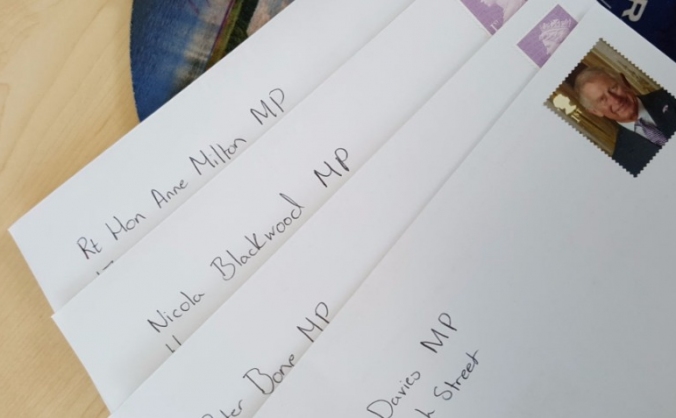 Rt Hon Anne Milton MP
Nicola Blackwood MP
Bone MP
Davies MP
Street
R